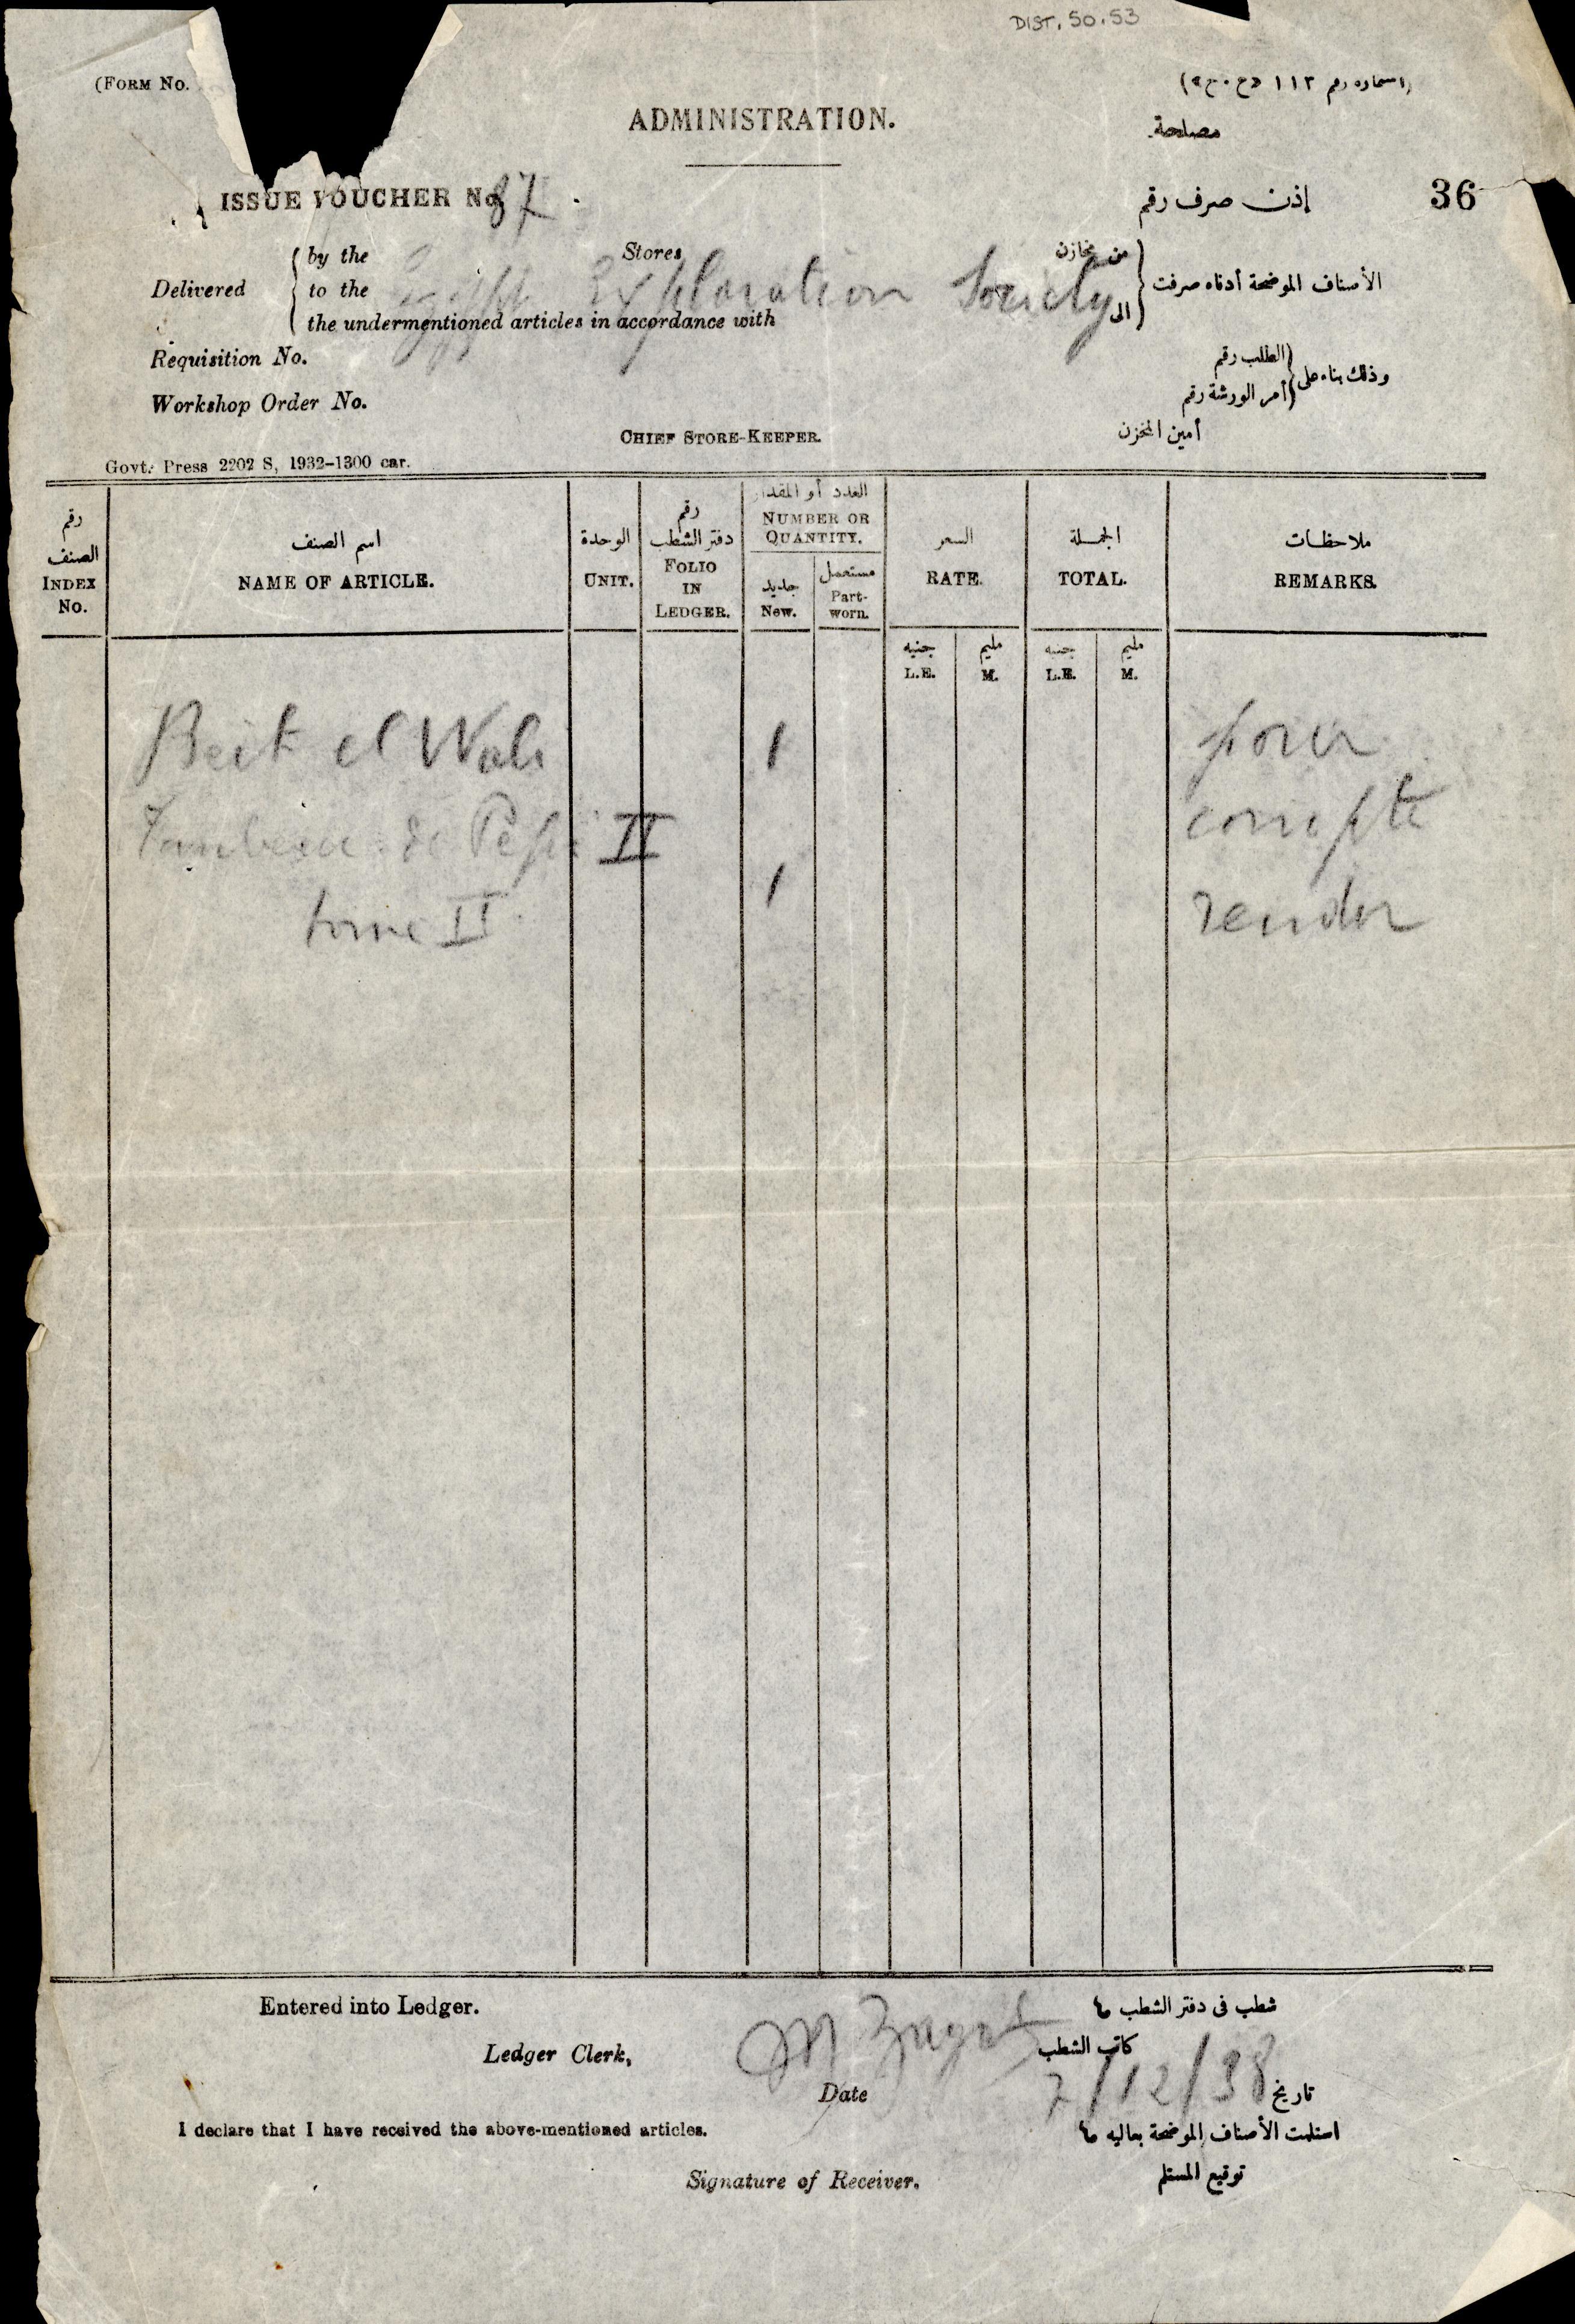 DIST. 50.53
(FORM No.
(استماره رقم ١١٢ «ع.ح»)
ADMINISTRATION.
مصلحة
ISSUE VOUCHER No. 87
إذن صرف رقم
36
Delivered
by the Stores
من مخازن
to the Egypt Exploration Society
الى
الأصناف الموضحة أدناه صرفت
the undermentioned articles in accordance with
Requisition No.
الطلب رقم
وذلك بناء على
Workshop Order No.
أمر الورشة رقم
CHIEF STORE-KEEPER.
أمين المخزن
Govt. Press 2202 S, 1932-1300 car.
رقم الصنف
INDEX No.
اسم الصنف
NAME OF ARTICLE.
الوحدة
UNIT.
رقم دفتر الشطب
FOLIO IN LEDGER.
العدد أو المقدار
NUMBER OR QUANTITY.
جديد
New.
مستعمل
Part-worn.
السعر
RATE.
الجملة
TOTAL.
ملاحظات
REMARKS.
جنيه مليم جنيه مليم
L.E. M. L.E. M.
Beit el Wali 1 pour
Tombeau de Pepi II compte
tome II 1 rendu
Entered into Ledger.
شطب فى دفتر الشطب ما
Ledger Clerk,
كاتب الشطب
Date 7/12/38 تاريخ
I declare that I have received the above-mentioned articles.
استلمت الأصناف الموضحة بعاليه ما
Signature of Receiver.
توقيع المستلم